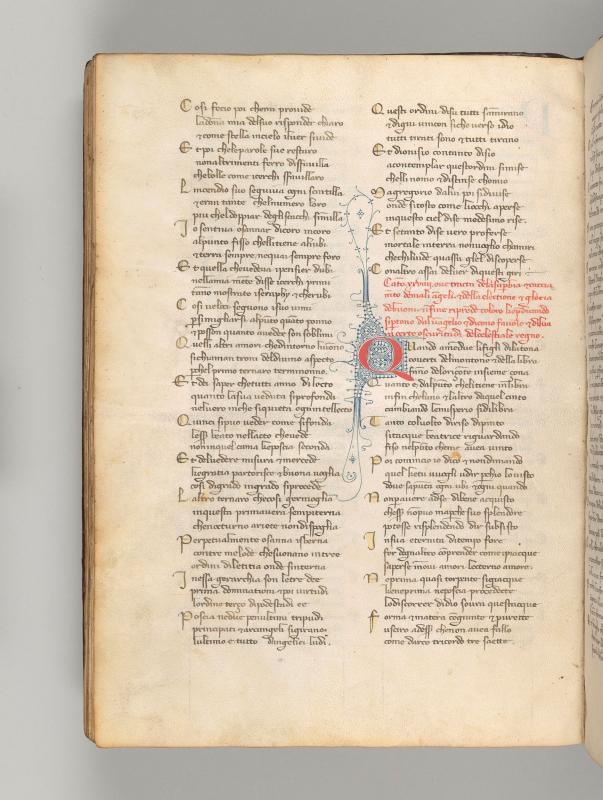 Cosi fecio poi chemi provide
ladonna mia delsuo risponder chiaro
et come stella incielo ilver sivide
Et poi cheleparole sue restaro
nonaltrimenti ferro disfavilla
chebolle come icerchi sfavillaro
Lincendio suo seguiva ogni scintilla
et eran tante chelnumero loro
piu cheldoppiar degliscacchi similla
Io sentiva osannar dicoro incoro
alpunto fisso cheglitiene aliubi
et terra sempre nequai sempre foro
Et quella chevedea ipensier dubi
nellamia mente disse icerchi primi
tanno mostrato iseraphy et cherubi
Cosi veloci seguono isuoi vimi
persimigliarsi alpunto quato ponno
et posson quanto aveder son soblimi
Quelli altri amori chedintorno livonno
sichiaman troni deldivino aspecto
pchel primo ternaro terminonno
Et dei saper chetutti anno diletto
quanto lasua veduta siprofonda
nelvero inche siqueta ogniintellecto
Quinci sipuo veder come sifonda
lesser beato nellacto chevede
noninquel cama keposcia seconda
Et delvedere misura et mercede
kegratia partorisce et buona voglia
cosi digrado ingrado siprocede
Laltro ternaro checosi germoglia
inquesta primavera sempiterna
chenocturno ariete nondispoglia
Perpetualmente osanna isberna
contre melode chesuonano intree
ordini diletitia onde sinterna
Inessa gerarchia son letre dee
prima dominationi et poi virtudi
lordine terço dipodestadi ee
Poscia nedue penultimi tripudi
principati et arcangeli sigirano
lultimo e tutto dangelici ludi
Questi ordini disu tutti samirano
et digiu vincon siche verso idio
tutti tirati sono et tutti tirano
Et dionisio contanto disio
acontemplar questordini simise
chelli nomo et distinse chomio
Magregorio dalui poi sidivise
onde sitosto come liocchi aperse
inquesto ciel dise medesimo rise
Et setanto dise vero proferse
mortale interra nonvoglio chamiri
chechilvide quassu gliel discoperse
Conaltro assai delver diquesti giri
Cato xxviiii ove tracta
Quando amedue lifigli dilatona
coverti delmontone et della libra
fanno deloriçonte insieme çona
Quanto e dalpunto chelitiene inlibra
infin cheluno et laltro daquel cinto
cambiando lemisperio sidilibra
Tanto colvolto diriso dipinto
sitacque beatrice riguardando
fiso nelpunto chemavea vinto
Poi comincio io dico et nondimando
quel ketu vuogli udir perchio lo visto
dove sapunta ogni ubi et ogni quando
Nonperavere adise dibene acquisto
chesser nonpuo maperche suo splendore
potesse risplendendo dir subsisto
Insua eternita ditempo fore
for dognaltro comprender come ipiacque
saperse innuovi amori lecterno amore
Neprima quasi torpente sigiacque
keneprima neposcia procedette
lodiscorrere didio sovra questacque
Forma et matera cogiunte et purette
usciro adesser chenon avea fallo
come darco tricordo tre saette